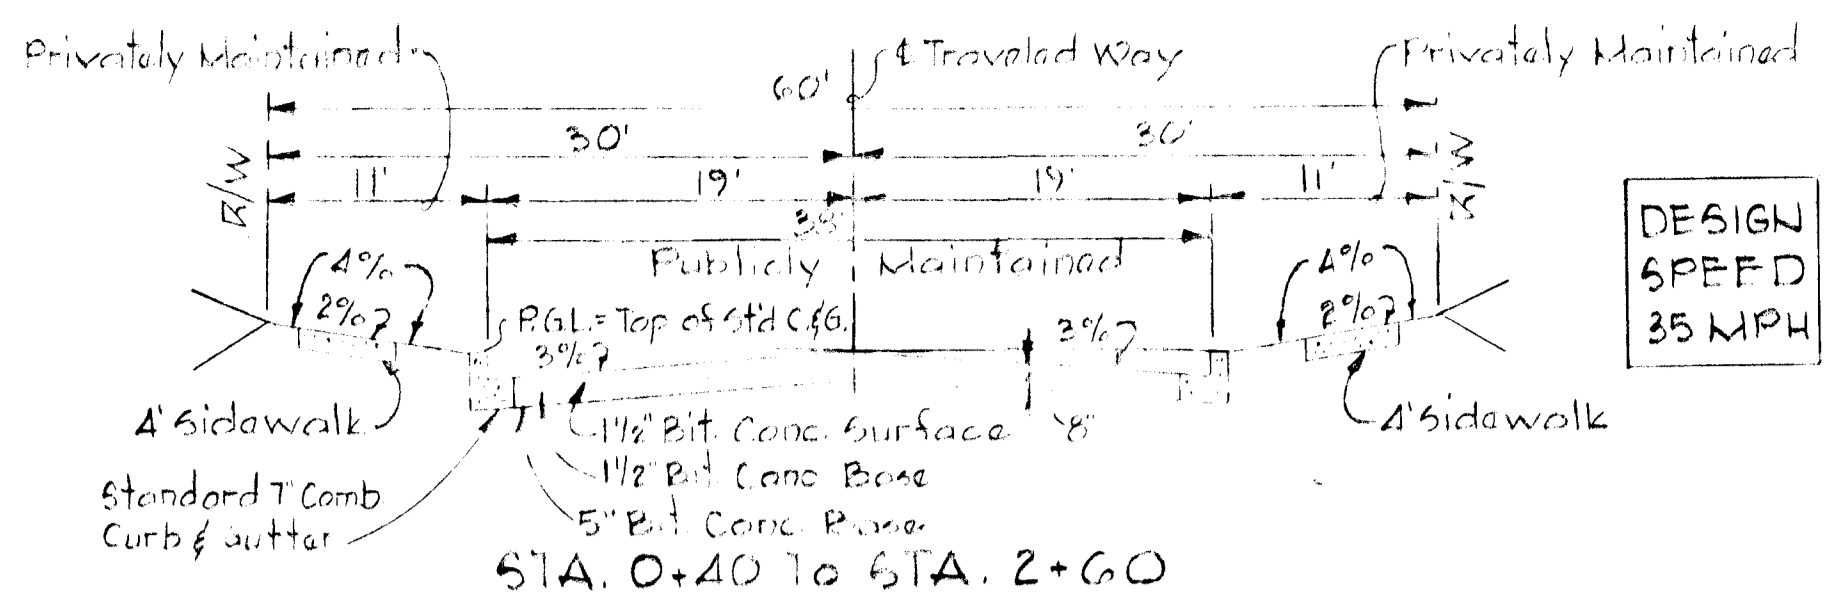 Privately Maintained
℄ Traveled Way
Privately Maintained
60'
30'
30'
R/W
11'
19'
19'
11'
R/W
38'
Publicly Maintained
4%
2%?
4%
2%?
P.G.L. = Top of St'd C.&G.
3%?
3%?
DESIGN
SPEED
35 MPH
4' Sidewalk
1½" Bit. Conc. Surface
8"
4' Sidewalk
1½" Bit. Conc Base
Standard 7" Comb
Curb & Gutter
5" Bit. Conc. Base
STA. 0+40 To STA. 2+60